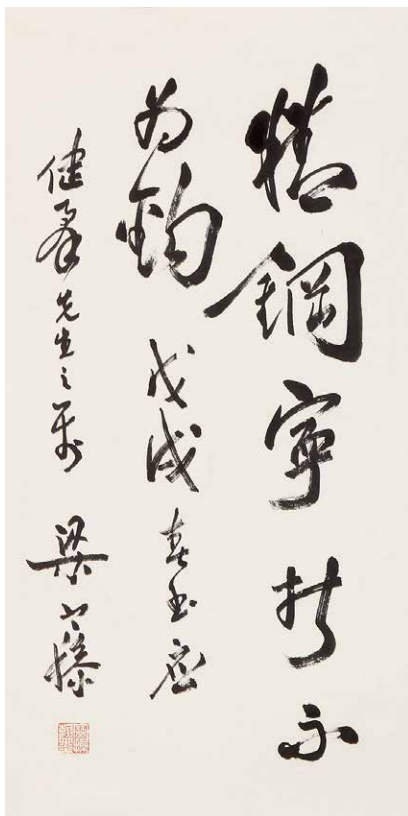 精鋼寧折不
為鈎 戊戌春書應
健羣先生之屬 梁寒操